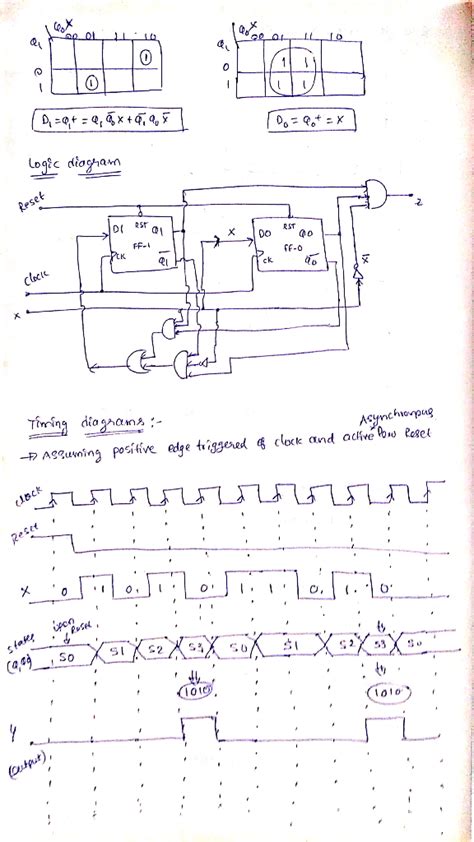 Q₀X
Q₁ 00 01 11 10
0 1
1 1
D₁ = Q₁⁺ = Q₁ Q̅₀ X + Q̅₁ Q₀ X̅
Q₀X
Q₁ 00 01 11 10
0 1 1
1 1 1
D₀ = Q₀⁺ = X
Logic diagram
Reset
D1 RST Q1
FF-1
CK Q̅1
X
D0 RST Q0
FF-0
CK Q̅0
Z
X̅
Clock
X
Timing diagrams :-
Asynchronous
→ Assuming positive edge triggered of clock and active low Reset
Clock
Reset
X 0 1 0 1 0 1 1 0 1 0
upon Reset
states
S0 S1 S2 S3 S0 S1 S2 S3 S0
1010 1010
Y
(Output)